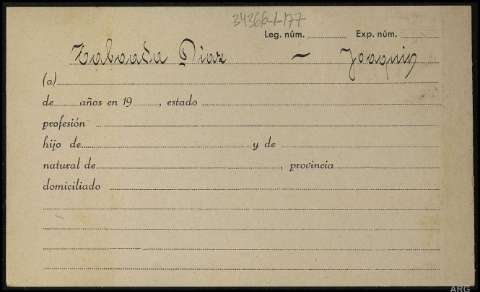 34366-1-177
Leg. núm. Exp. núm.
Taboada Diaz – Joaquin
(a)
de años en 19 , estado
profesión
hijo de y de
natural de , provincia
domiciliado
ARG